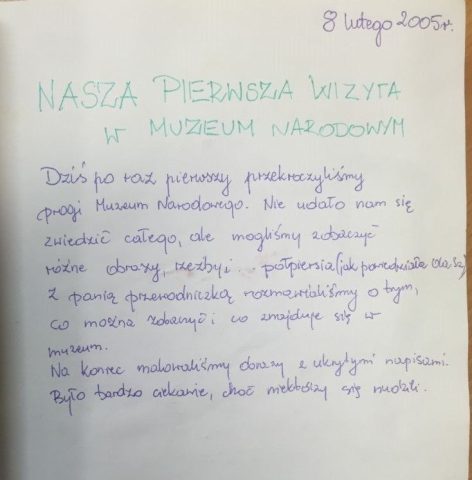 8 lutego 2005r.
NASZA PIERWSZA WIZYTA
W MUZEUM NARODOWYM
Dziś po raz pierwszy przekroczyliśmy
progi Muzeum Narodowego. Nie udało nam się
zwiedzić całego, ale mogliśmy zobaczyć
różne obrazy, rzeźby i półpiersia (jak powiedziała Ola Sz)
Z panią przewodniczką rozmawialiśmy o tym,
co można zobaczyć i co znajduje się w
muzeum.
Na koniec malowaliśmy obrazy z ukrytymi napisami.
Było bardzo ciekawie, choć niektórzy się nudzili.